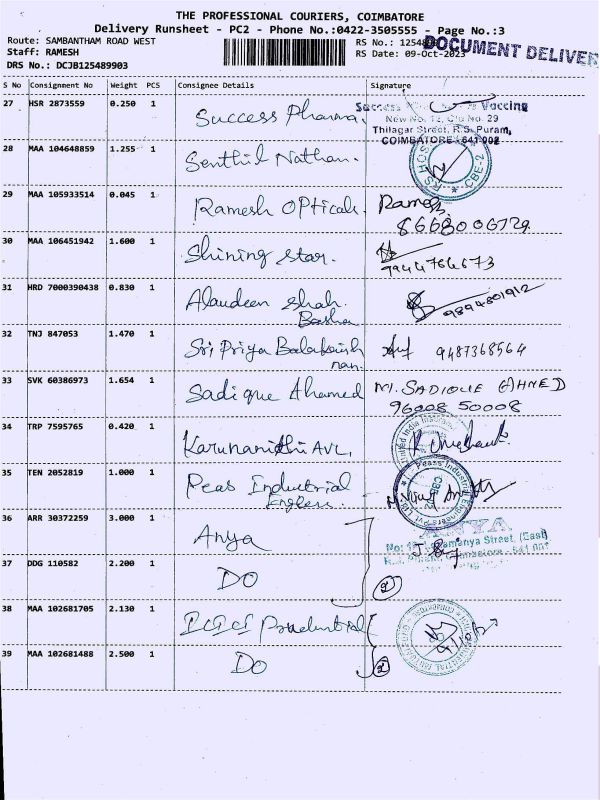 THE PROFESSIONAL COURIERS, COIMBATORE
Delivery Runsheet - PC2 - Phone No.:0422-3505555 - Page No.:3
Route: SAMBANTHAM ROAD WEST RS No.: 12548
Staff: RAMESH RS Date: 09-Oct-2023
DOCUMENT DELIVER
DRS No.: DCJB125489903
S No Consignment No Weight PCS Consignee Details Signature
27 HSR 2873559 0.250 1 Success Pharma.
Success Vaccine
New No. 12, Old No. 29
Thilagar Street, R.S. Puram,
COIMBATORE - 641 002
28 MAA 104648859 1.255 1 Senthil Nathan.
CBE-2
29 MAA 105933514 0.045 1 Ramesh Opticals. Ramesh
8668006729
30 MAA 106451942 1.600 1 Shining star.
9944764673
31 HRD 7000390438 0.830 1 Alaudeen Shah.
Basha 9894801912
32 TNJ 847053 1.470 1 Sri Priya Balakrish
nan. 9487368564
33 SVK 60386973 1.654 1 Sadique Ahamed M. SADIQUE AHMED
96008 50008
34 TRP 7595765 0.420 1 Karunanidhi AVL.
United India Insuran
35 TEN 2052819 1.000 1 Peas Industrial
Engleers
Peass Industrial Engineers Pvt Ltd
36 ARR 30372259 3.000 1 Anya
ANYA
Street, (East)
37 DDG 110582 2.200 1 DO
2
38 MAA 102681705 2.130 1 ICICI Prudential
39 MAA 102681488 2.500 1 DO
2